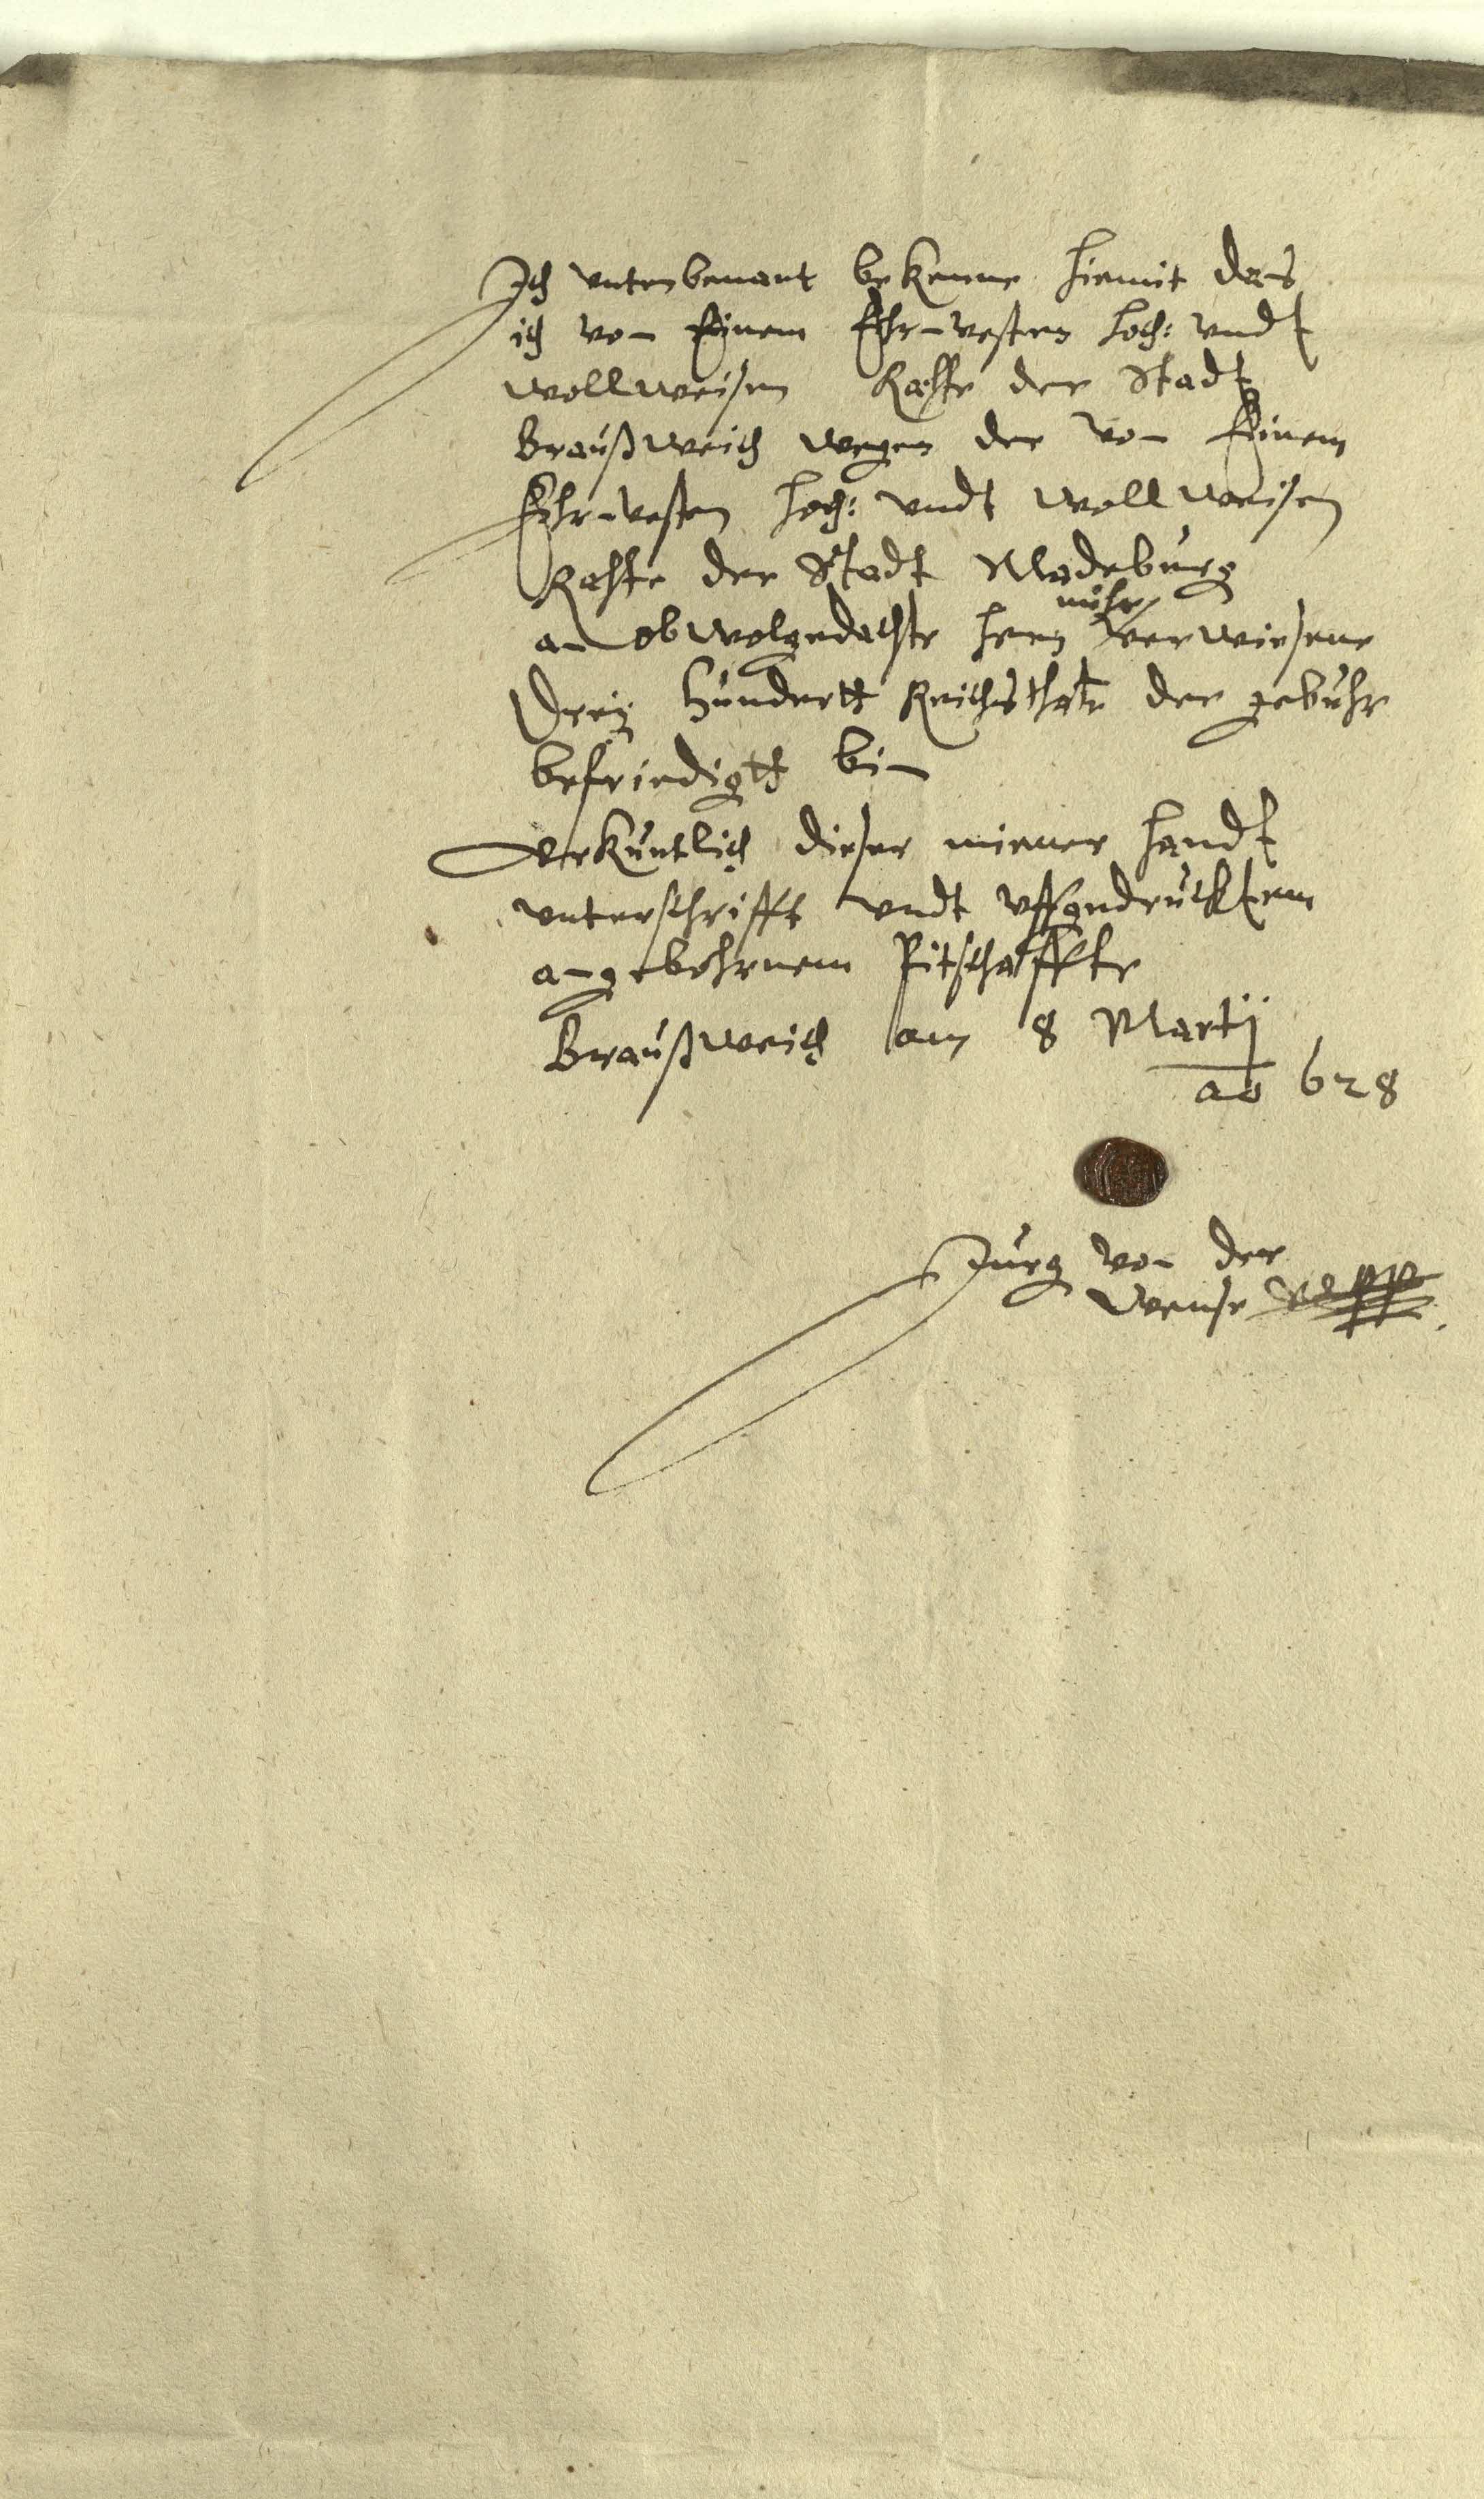 Ich vntenbenant bekenne hiemit das
ich von Einem Ehrnvesten hoch: vndt
wollweisen Rahte der Stadt
Braußweich wegen der von Einem
Ehrnvesten hoch: undt wollweisen
Rahte der Stadt Madeburg
an obwolgedachte hern mihr verwiesene
Dreij hundertt Reichsthalr der gebuhr
befriedigtt bin
Vrkuntlich dieser meiner handt
vnterschrifft vndt vffgedrucktem
angebohrnem Pitschaffte
Braußweich am 8 Martij
ao 628
Jurg von der
Wense